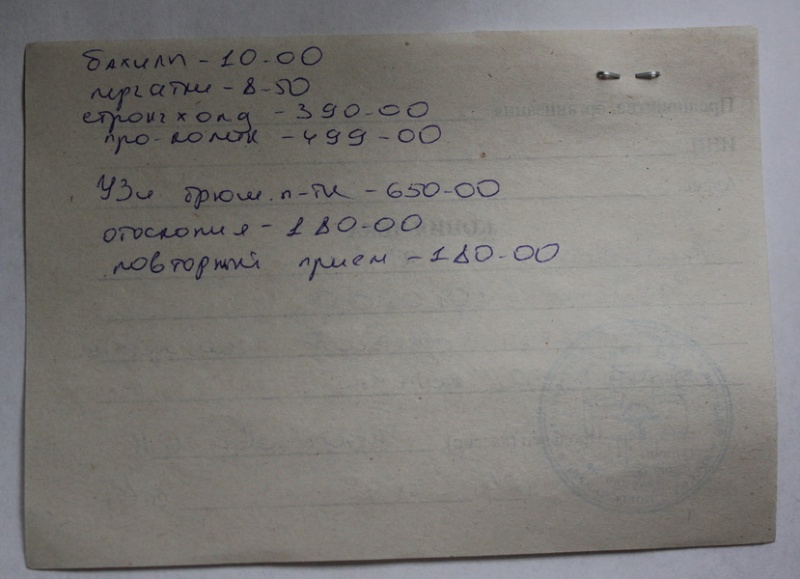 бахилы - 10-00
перчатки - 8-50
стронгхолд - 390-00
про-колть - 499-00
УЗИ брюш. п-ти - 650-00
отоскопия - 180-00
повторный прием - 180-00